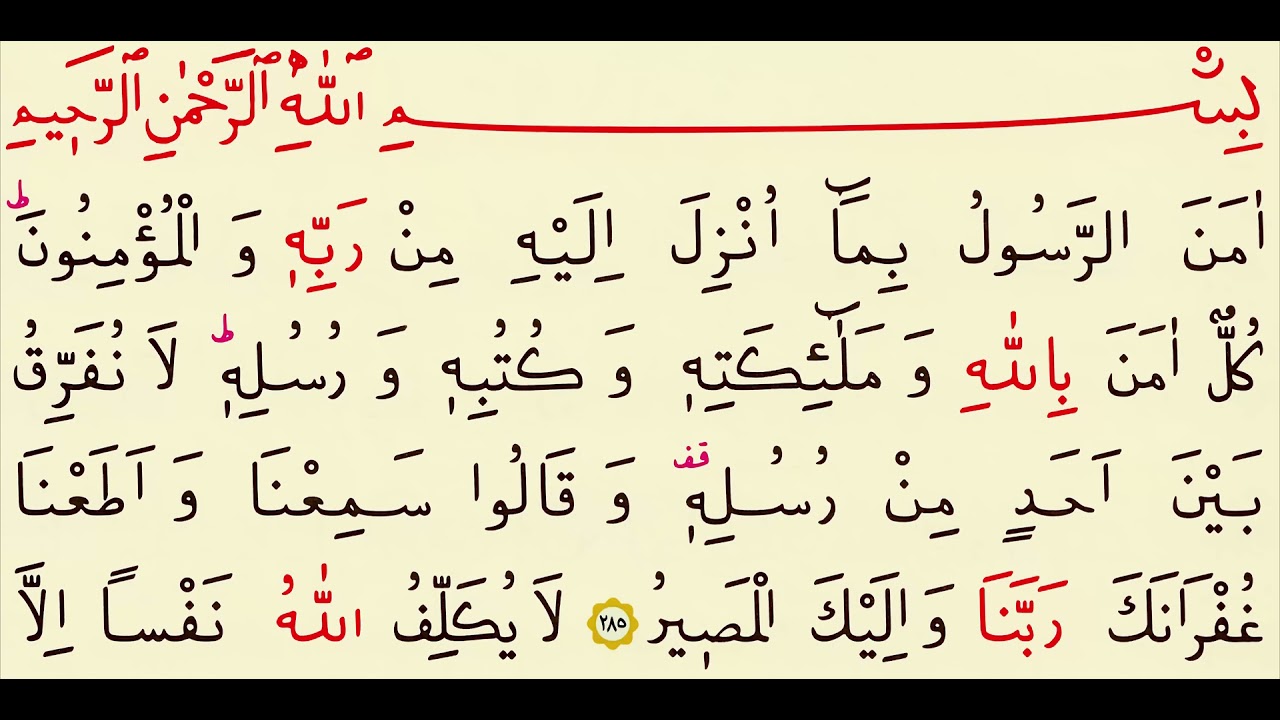 بِسْمِ ٱللّٰهِ ٱلرَّحْمٰنِ ٱلرَّحٖيمِ
اٰمَنَ الرَّسُولُ بِمَٓا اُنْزِلَ اِلَيْهِ مِنْ رَبِّهٖ وَ الْمُؤْمِنُونَؕ
كُلٌّ اٰمَنَ بِاللّٰهِ وَ مَلٰٓئِكَتِهٖ وَ كُتُبِهٖ وَ رُسُلِهٖؕ لَا نُفَرِّقُ
بَيْنَ اَحَدٍ مِنْ رُسُلِهٖ قف وَ قَالُوا سَمِعْنَا وَ اَطَعْنَا
غُفْرَانَكَ رَبَّنَا وَ اِلَيْكَ الْمَصٖيرُ ﴿٢٨٥﴾ لَا يُكَلِّفُ اللّٰهُ نَفْساً اِلَّا